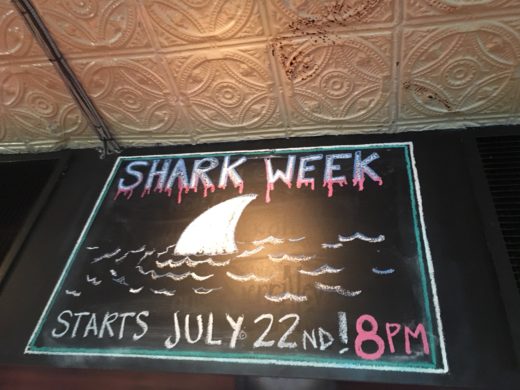 SHARK WEEK
STARTS JULY 22ND! 8PM